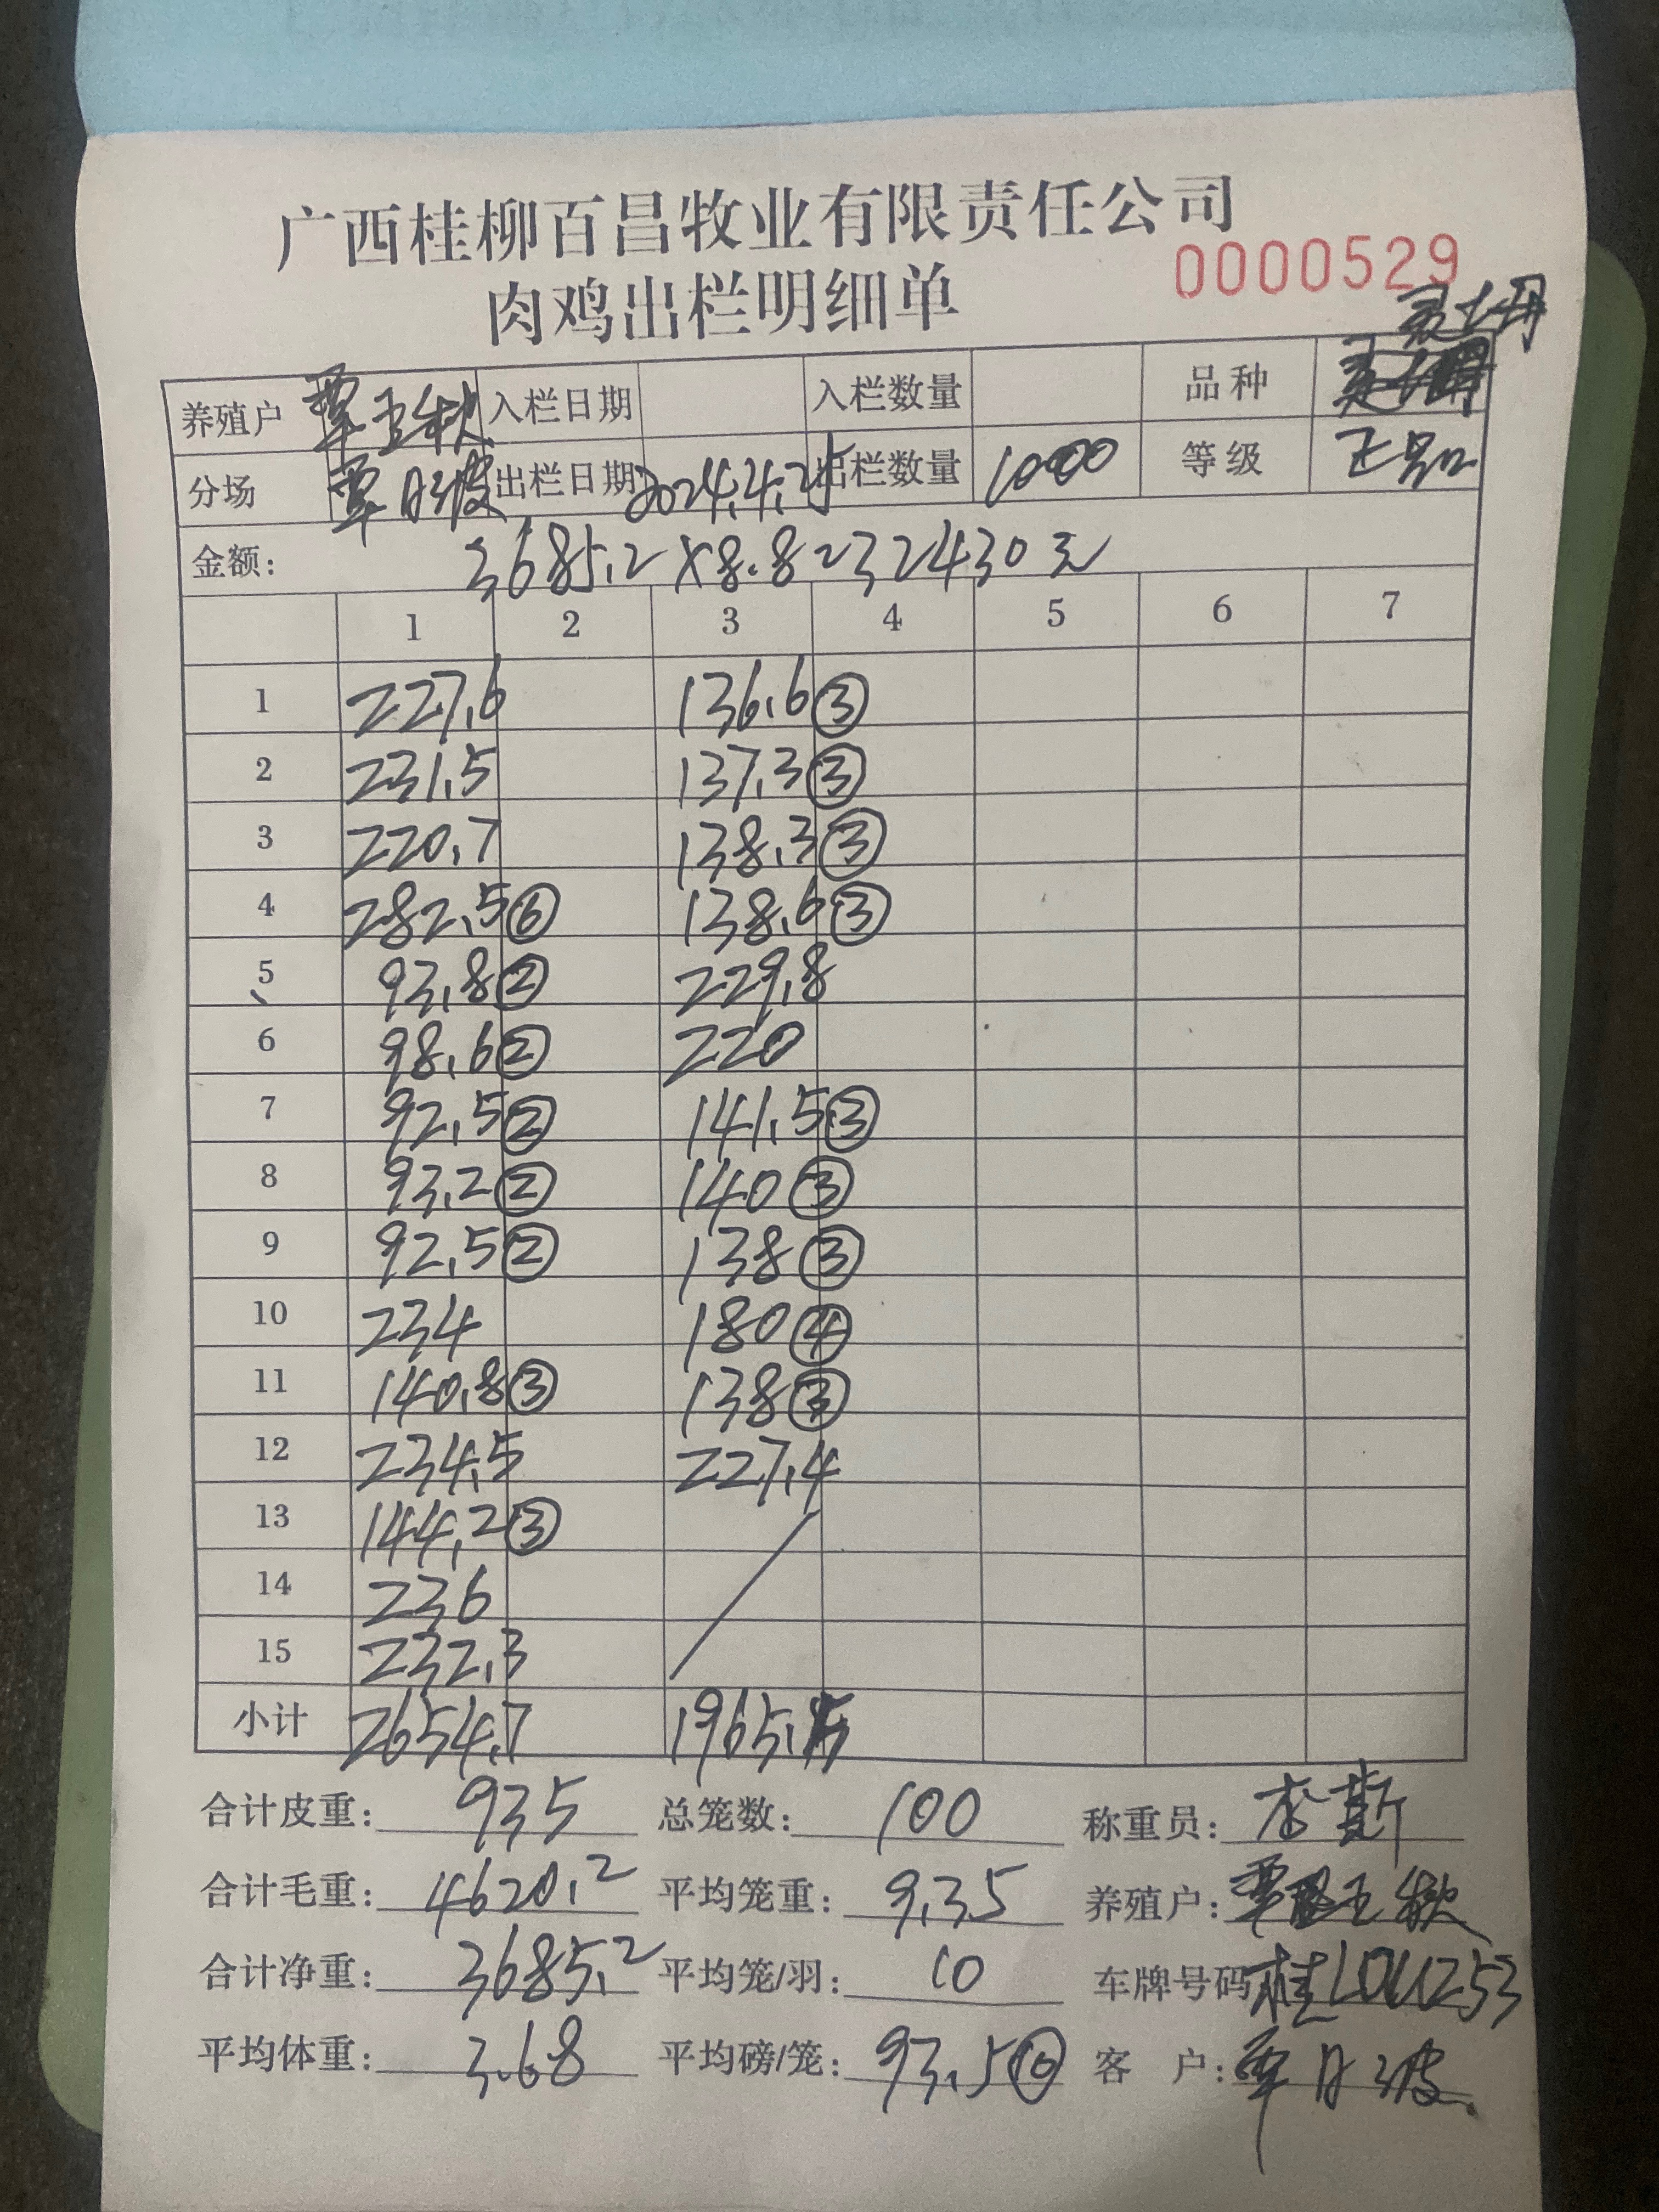 广西桂柳百昌牧业有限责任公司
肉鸡出栏明细单
0000529
灵土丹
养殖户 覃玉秋 入栏日期 入栏数量 品种
分场 覃日波 出栏日期 2024.4.25 出栏数量 1000 等级 正品
金额: 3685.2×8.8=32430元
1 2 3 4 5 6 7
1 227.6 136.6③
2 231.5 137.3③
3 220.7 138.3③
4 282.5⑥ 138.6③
5 93.8② 229.8
6 98.6② 220
7 92.5② 141.5③
8 93.2② 140③
9 92.5② 138③
10 234 180④
11 140.8③ 138③
12 234.5 227.4
13 144.2③
14 236
15 232.3
小计 2654.7 1965.5
合计皮重: 935 总笼数: 100 称重员: 李斯
合计毛重: 4620.2 平均笼重: 9.35 养殖户: 覃玉秋
合计净重: 3685.2 平均笼/羽: 10 车牌号码 桂L0U253
平均体重: 3.68 平均磅/笼: 93.5⑩ 客 户: 覃日波